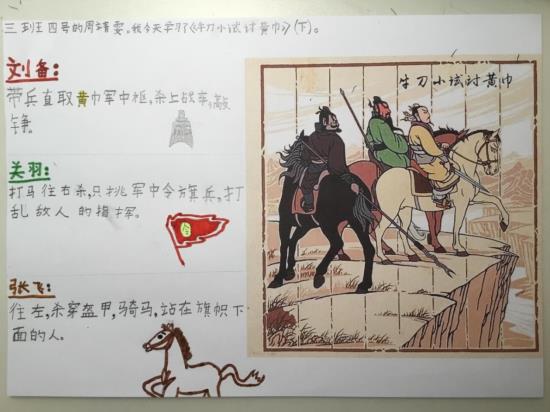 三班王四号的周靖雯。我今天学习《牛刀小试讨黄巾》(下)。
刘备:
带兵直取黄巾军中枢,杀上战车,敲
铮。
关羽:
打马往右杀,只挑军中令旗兵,打
乱敌人的指挥。
令
张飞:
往左,杀穿盔甲,骑马,站在旗帜下
面的人。
牛刀小试讨黄巾